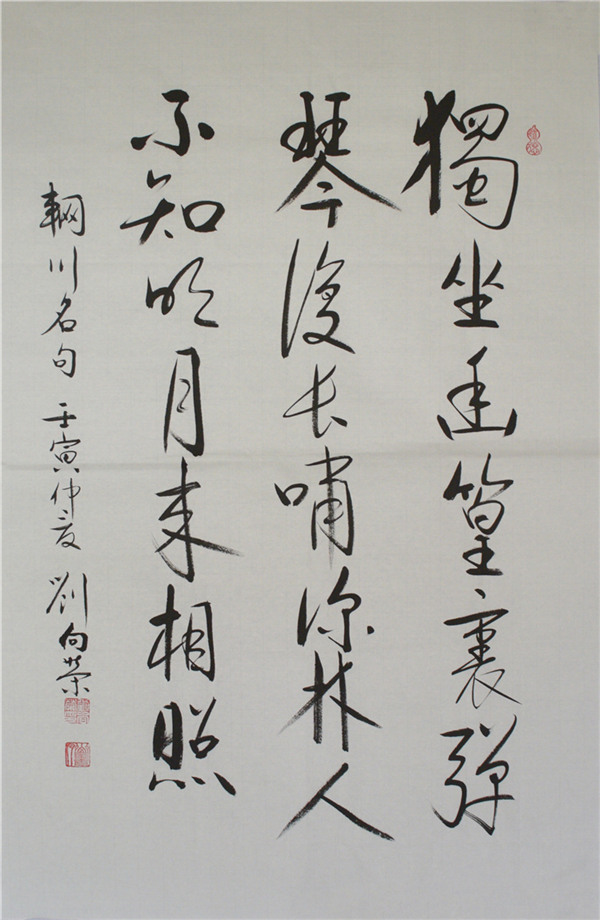 獨坐幽篁裏彈
琴復长嘯深林人
不知明月来相照
輞川名句 壬寅仲夏 劉向荣